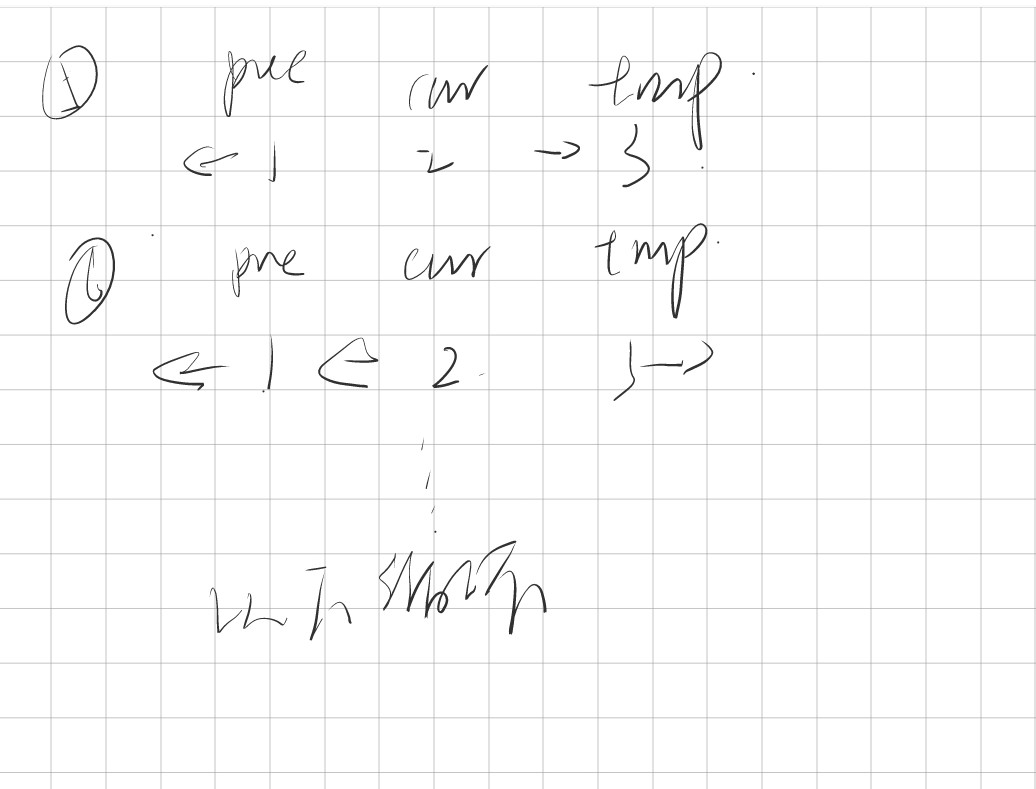 ① pre cur tmp
← 1 2 → 3
② pre cur tmp
← 1 ← 2 3 →
以下